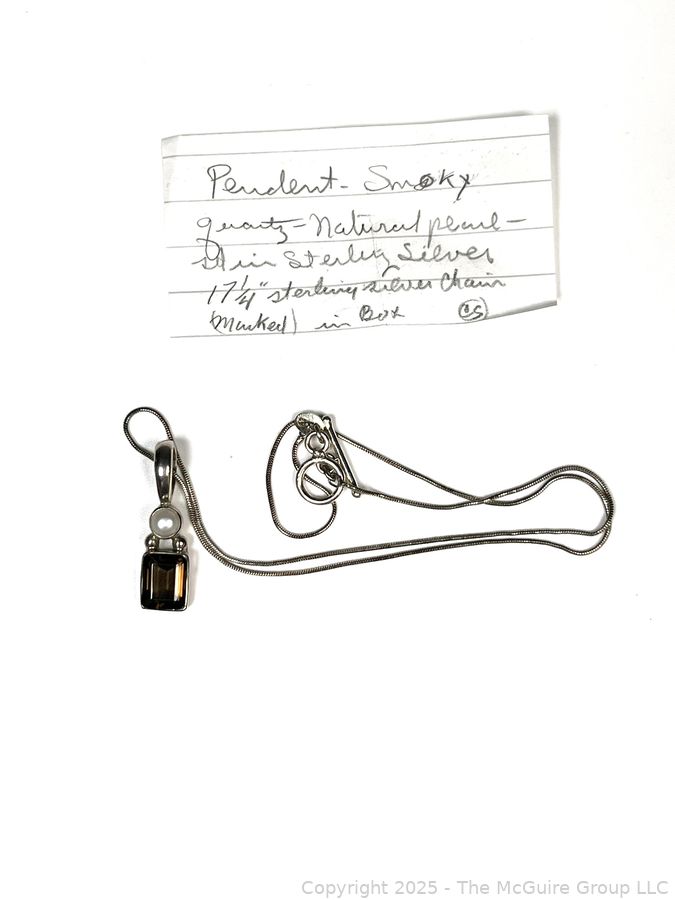 Pendent - Smoky
quartz - Natural pearl -
in Sterling Silver
17 1/4" sterling silver Chain
(Marked) in Box CS
Copyright 2025 - The McGuire Group LLC